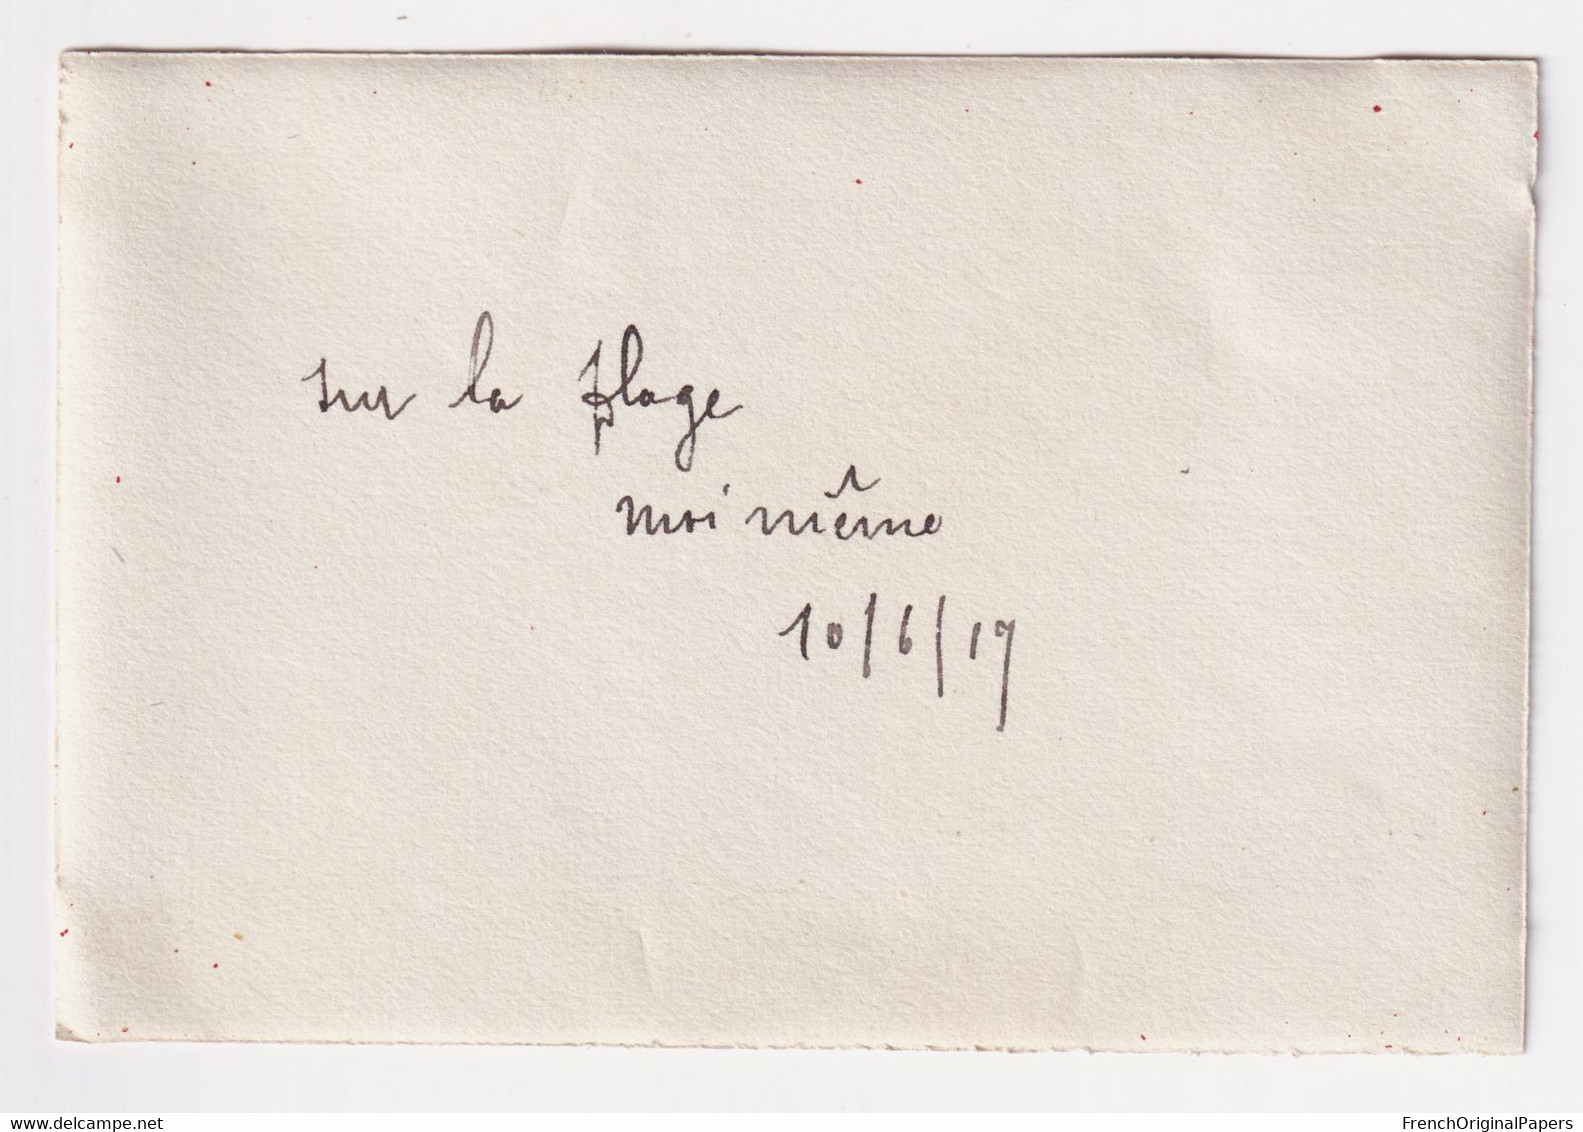 sur la plage
moi même
10/6/17
FrenchOriginalPapers
delcampe.net